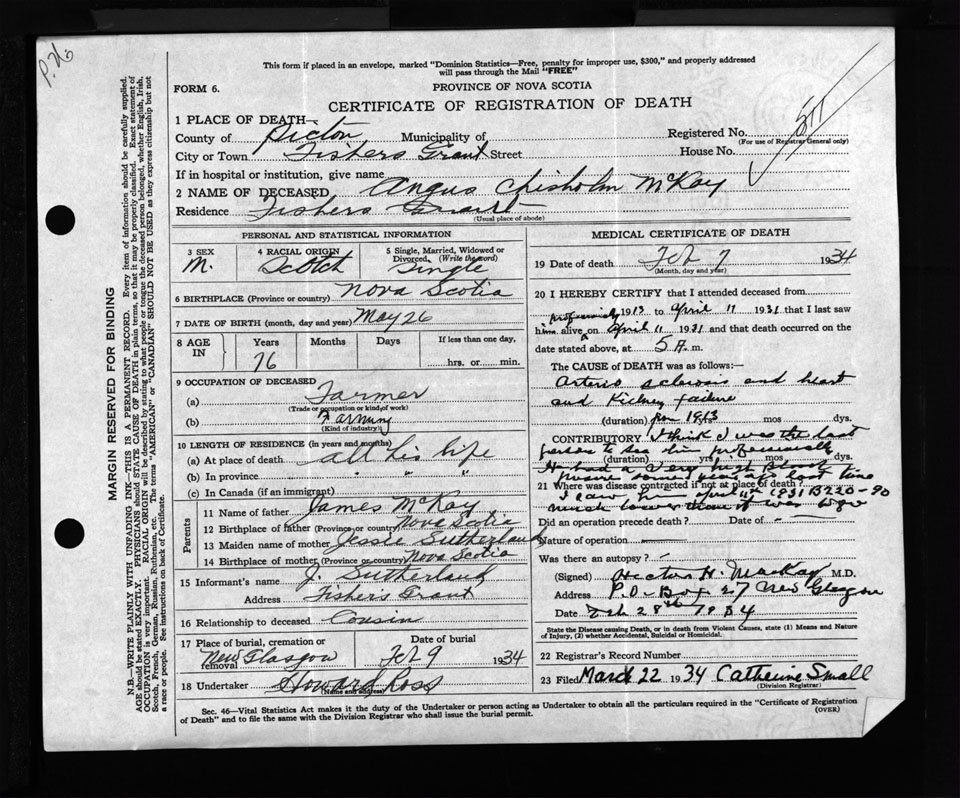 P. 26
This form if placed in an envelope, marked "Dominion Statistics—Free, penalty for improper use, $300," and properly addressed
will pass through the Mail "FREE"
FORM 6.
PROVINCE OF NOVA SCOTIA
CERTIFICATE OF REGISTRATION OF DEATH
1 PLACE OF DEATH—
County of Pictou Municipality of
Registered No. 511
(For use of Registrar General only)
City or Town Fishers Grant Street House No.
If in hospital or institution, give name
2 NAME OF DECEASED Angus Chisholm McKay
Residence Fishers Grant
(Usual place of abode)
PERSONAL AND STATISTICAL INFORMATION
3 SEX M.
4 RACIAL ORIGIN Scotch
5 Single, Married, Widowed or Divorced, (Write the word) Single
6 BIRTHPLACE (Province or country) Nova Scotia
7 DATE OF BIRTH (month, day and year) May 26
8 AGE IN Years Months Days If less than one day,
76 hrs. or min.
9 OCCUPATION OF DECEASED
(a) Farmer
(Trade or occupation or kind of work)
(b) Farming
(Kind of industry)
10 LENGTH OF RESIDENCE (in years and months)
(a) At place of death all his life
(b) In province " " "
(c) In Canada (if an immigrant)
Parents
11 Name of father James McKay
12 Birthplace of father (Province or country) Nova Scotia
13 Maiden name of mother Jessie Sutherland
14 Birthplace of mother (Province or country) Nova Scotia
15 Informant's name J. Sutherland
Address Fisher's Grant
16 Relationship to deceased Cousin
17 Place of burial, cremation or removal New Glasgow
Date of burial Feb 9 1934
18 Undertaker Howard Ross
(Name and address)
MEDICAL CERTIFICATE OF DEATH
19 Date of death Feb 7 1934
(Month, day and year)
20 I HEREBY CERTIFY that I attended deceased from
professionally 1913 to April 11 1931 that I last saw
him alive on April 11 1931 and that death occurred on
date stated above, at 5 A. m.
The CAUSE of DEATH was as follows:—
Arterio sclerosis and heart
and Kidney failure
(duration) from 1913 mos dys.
CONTRIBUTORY I think I was the last
person to see him professionally
(duration) yrs mos dys.
He had a very high Blood
some last time
21 Where was disease contracted if not at place of death?
I saw him April 11th 1931 B 220-90
much lower than it was
Did an operation precede death? Date of
Nature of operation
Was there an autopsy? -
(Signed) Hector H. MacKay M.D.
Address P.O. Box 27 New Glasgow
Date Feb 28th 1934
State the Disease causing Death, or in death from Violent Causes, state (1) Means and Nature
of Injury, (2) whether Accidental, Suicidal or Homicidal.
22 Registrar's Record Number
23 Filed March 22 1934 Catherine Small
(Division Registrar)
Sec. 46—Vital Statistics Act makes it the duty of the Undertaker or person acting as Undertaker to obtain all the particulars required in the "Certificate of Registration
of Death" and to file the same with the Division Registrar who shall issue the burial permit.
(OVER)
MARGIN RESERVED FOR BINDING
N.B.—WRITE PLAINLY WITH UNFADING INK—THIS IS A PERMANENT RECORD. Every item of information should be carefully supplied.
AGE should be stated EXACTLY. PHYSICIANS should STATE CAUSE OF DEATH in plain terms, so that it may be properly classified. Exact statement of
OCCUPATION is very important. RACIAL ORIGIN will be described by stating to what people or tongue the deceased person belonged, whether English, Irish,
Scotch, French, German, Russian, Ruthenian, etc. The terms "AMERICAN" or "CANADIAN" SHOULD NOT BE USED as they express citizenship but not
a race or people. See instructions on back of Certificate.